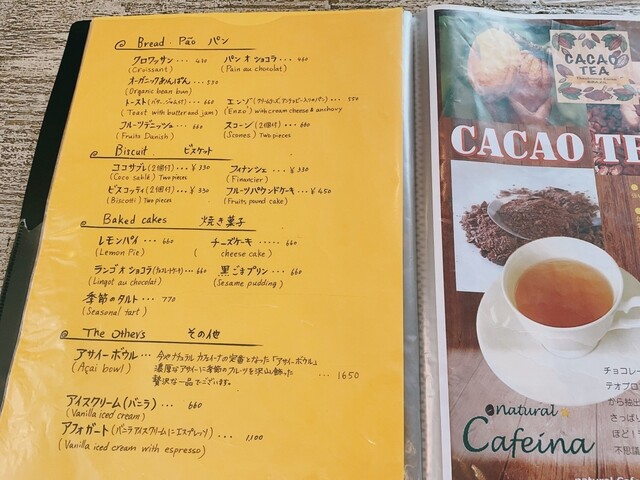 Bread Pão パン
クロワッサン・・・430
(Croissant)
パン オ ショコラ・・460
(Pain au chocolat)
オーガニックあんぱん・・・550
(Organic bean bun)
トースト(バター、ジャム付)・・・660
("Toast with butter and jam)
エンゾ(クリームチーズ、アンチョビー入りのパン)・・・550
("Enzo") with cream cheese & anchovy
フルーツデニッシュ・・・660
(Fruits Danish)
スコーン(2個付)・・・660
(Scones) Two pieces
Biscuit ビスケット
ココサブレ(2個付)・・・¥330
(Coco sablé) Two pieces
フィナンシェ・・・¥330
(Financier)
ビスコッティ(2個付)・・¥330
(Biscotti) Two pieces
フルーツパウンドケーキ・・¥450
(Fruits pound cake)
Baked cakes 焼き菓子
レモンパイ・・・660
(Lemon Pie)
チーズケーキ・・・・・660
( cheese cake)
ランゴ オ ショコラ
660
(Lingot au chocolat)
黒ごまプリン・・・660
(Sesame pudding)
季節のタルト・・・770
(Seasonal tart)
The Others その他
アサイーボウル・・・今やナチュラル カフェイナの定番となった「アサイーボウル」
(Açai bowl) 濃厚なアサイーに季節のフルーツを沢山飾った ・・・1650
贅沢な一品でございます。
アイスクリーム(バニラ)・・・660
(Vanilla iced cream)
アフォガート(バニラアイスクリームにエスプレッソ)・・・1100
(Vanilla iced cream with espresso)
CACAO
TEA
CACAO TE
チョコレー
テオブロ
から抽出
さっぱり
ほど!
不思議
natural
Cafeina
natural Caf